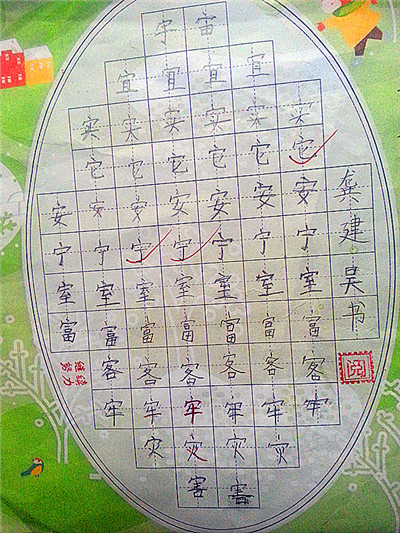 宇 宙
宜 宜 宜 宜
实 实 实 实 实 实
它 它 它 它 它 它
安 安 安 安 安 安 安
宁 宁 宁 宁 宁 宁 宁
室 室 室 室 室 室 室
富 富 富 富 富 富 富
客 客 客 客 客 客
牢 牢 牢 牢 牢 牢
灾 灾 灾 灾
害 害
龚建吴书
继续
努力